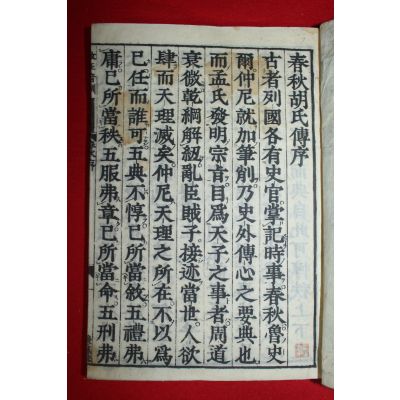 春秋胡氏傳序
古者列國各有史官掌記時事春秋魯史
爾仲尼就加筆削乃史外傳心之要典也
而孟氏發明宗旨目爲天子之事者周道
衰微乾綱解紐亂臣賊子接迹當世人欲
肆而天理滅矣仲尼天理之所在不以爲
己任而誰可五典不惇己所當敘五禮弗
庸己所當秩五服弗章己所當命五刑弗